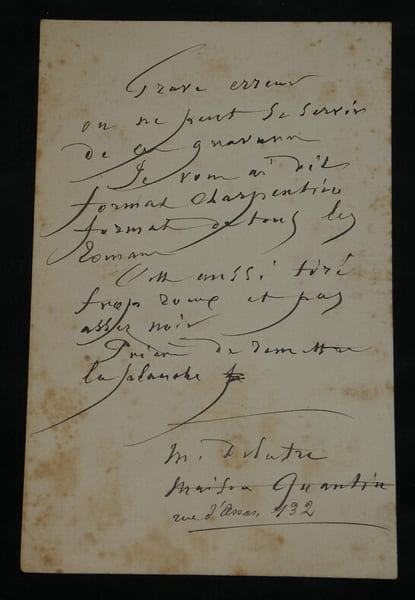 Grave erreur
on ne peut se servir
de ce gravure
Je vous ai dit
format Charpentier
format de tous les
romans
C'est aussi tiré
trop roux et pas
assez noir
Prière de remettre
la planche
M. Delatre
Maison Quantin
rue d'Assas 132